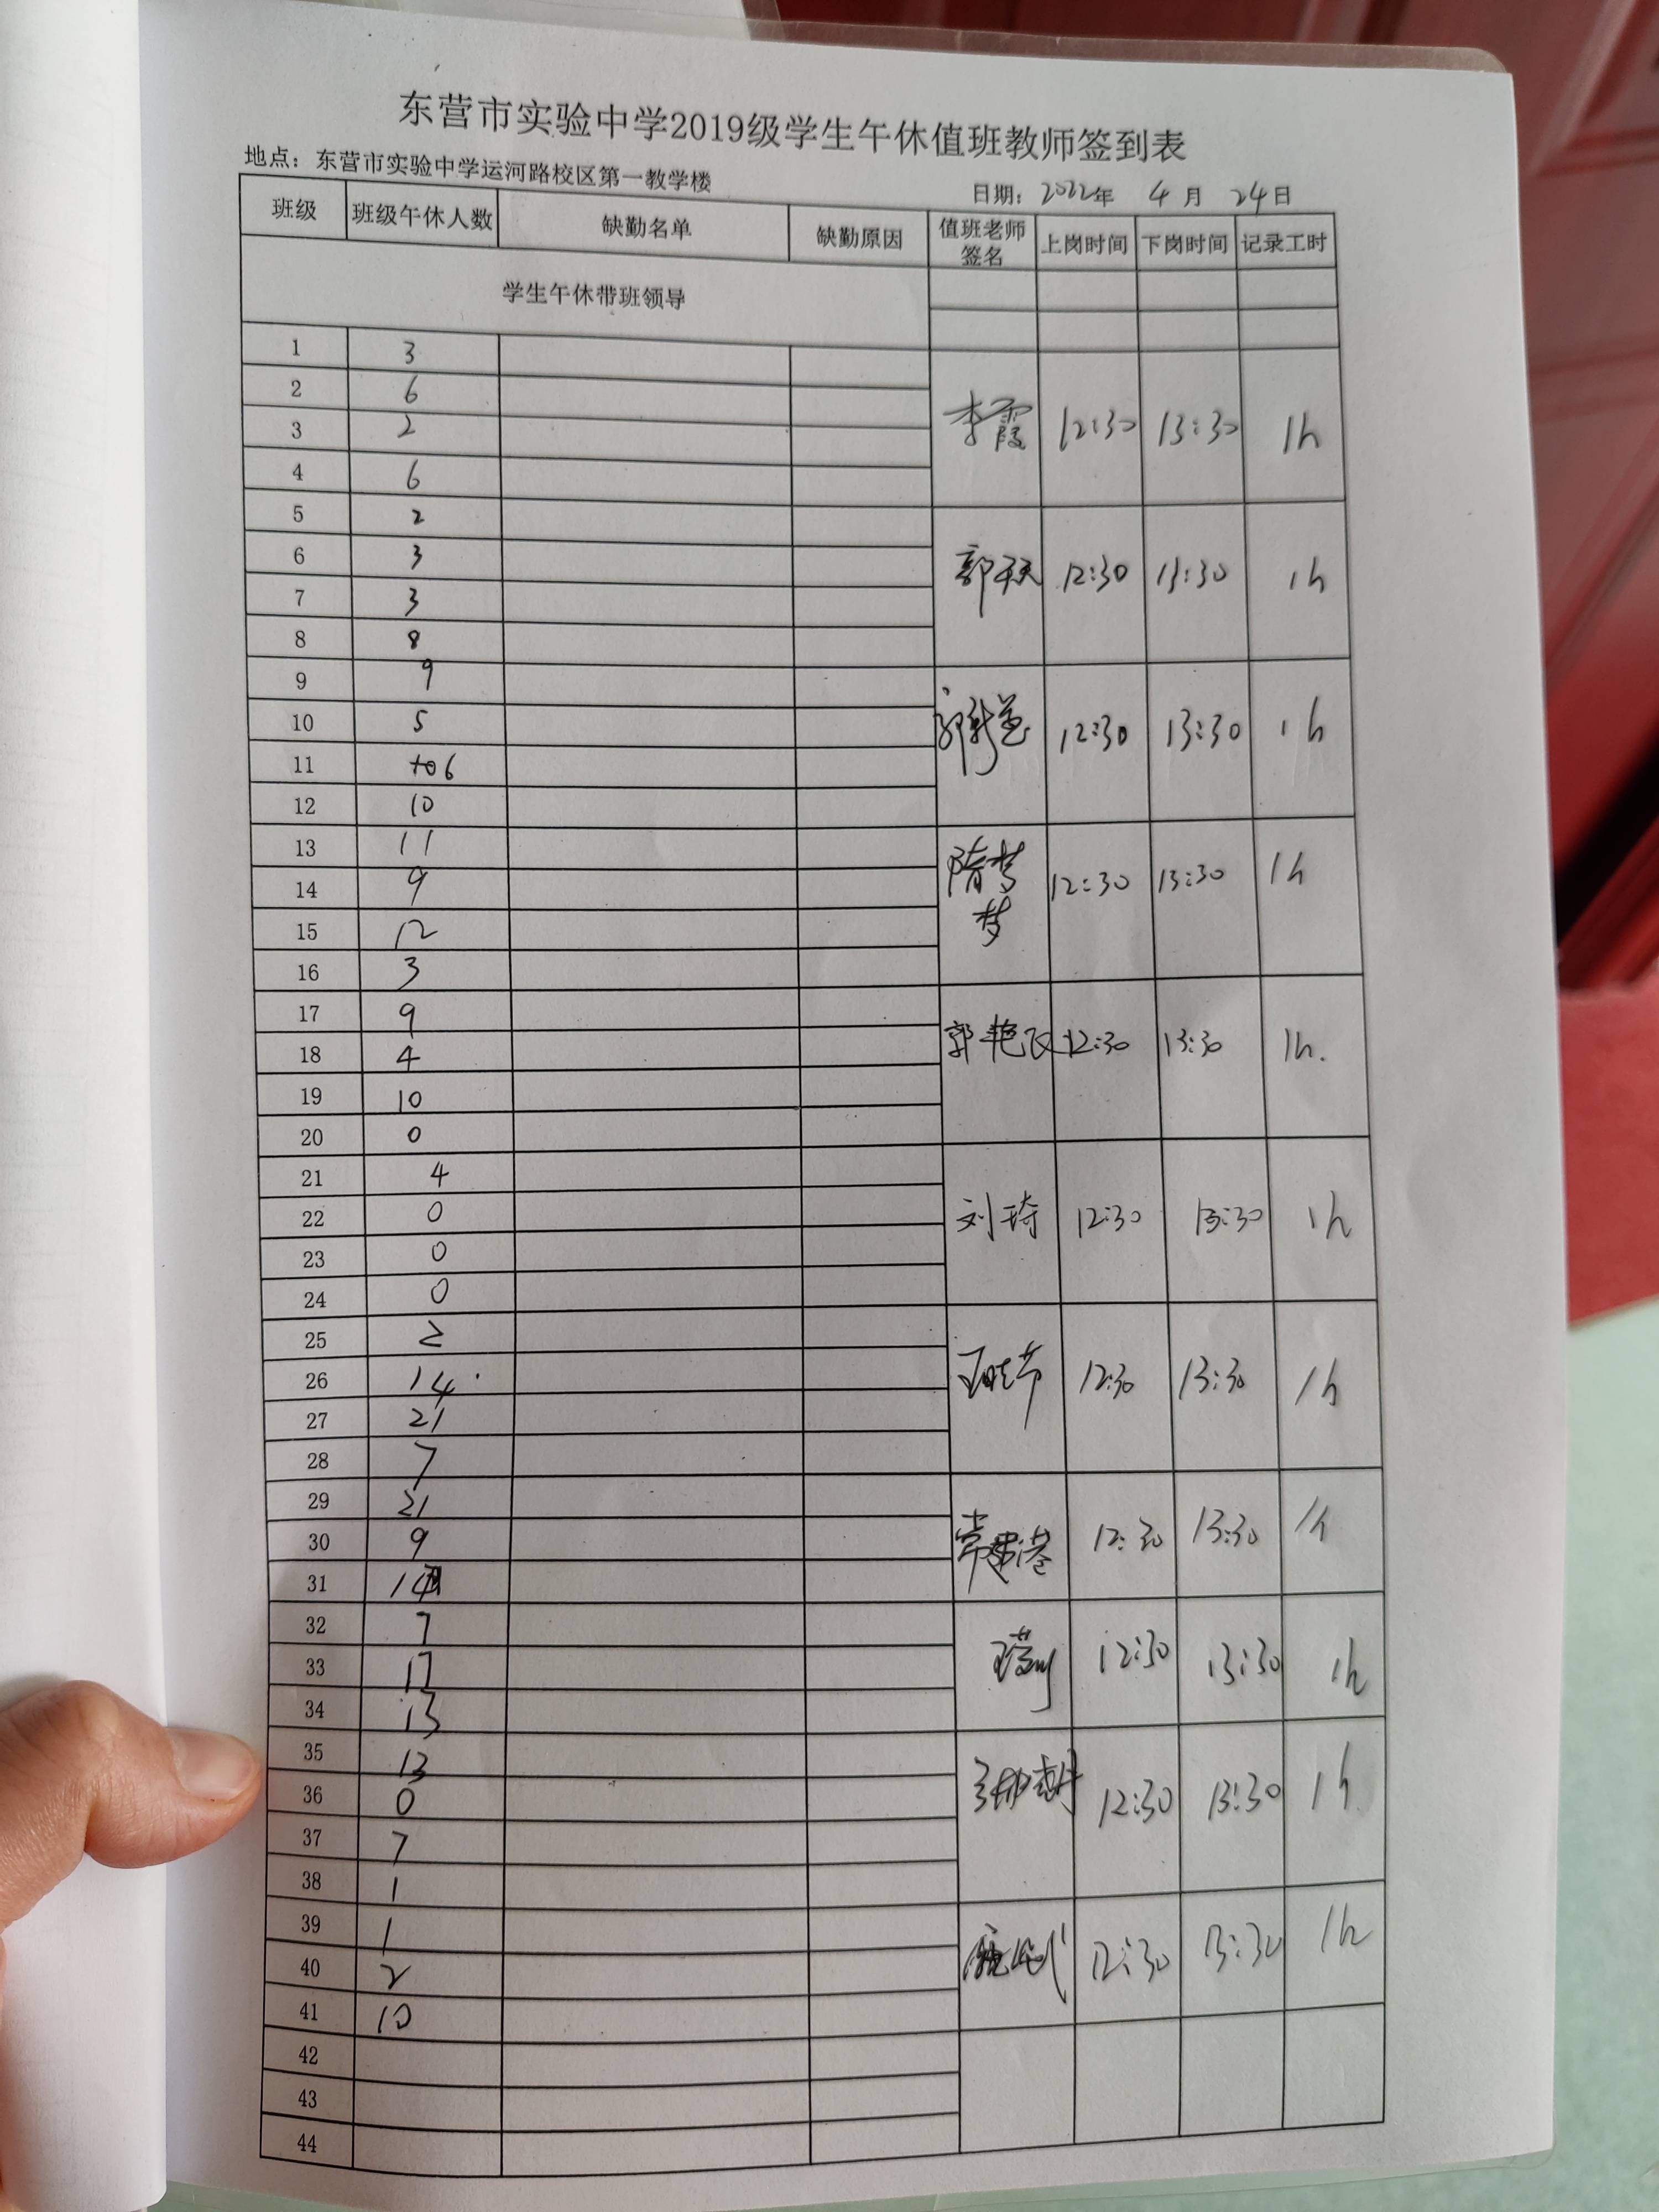 东营市实验中学2019级学生午休值班教师签到表
地点：东营市实验中学运河路校区第一教学楼
日期：2022年 4月 24日
班级 班级午休人数 缺勤名单 缺勤原因 值班老师签名 上岗时间 下岗时间 记录工时
学生午休带班领导
1 3
2 6
3 2 李霞 12:30 13:30 1h
4 6
5 2
6 3
7 3 郭天天 12:30 13:30 1h
8 8
9 9
10 5 12:30 13:30 1h
11 6
12 10
13 11
14 9 隋梦梦 12:30 13:30 1h
15 12
16 3
17 9
18 4 郭艳飞 12:30 13:30 1h.
19 10
20 0
21 4
22 0 刘琦 12:30 13:30 1h
23 0
24 0
25 2
26 14 12:30 13:30 1h
27 21
28 7
29 21
30 9 12:30 13:30 1h
31 14
32 7
33 17 12:30 13:30 1h
34 13
35 13
36 0 12:30 13:30 1h
37 7
38 1
39 1
40 2 12:30 13:30 1h
41 10
42
43
44